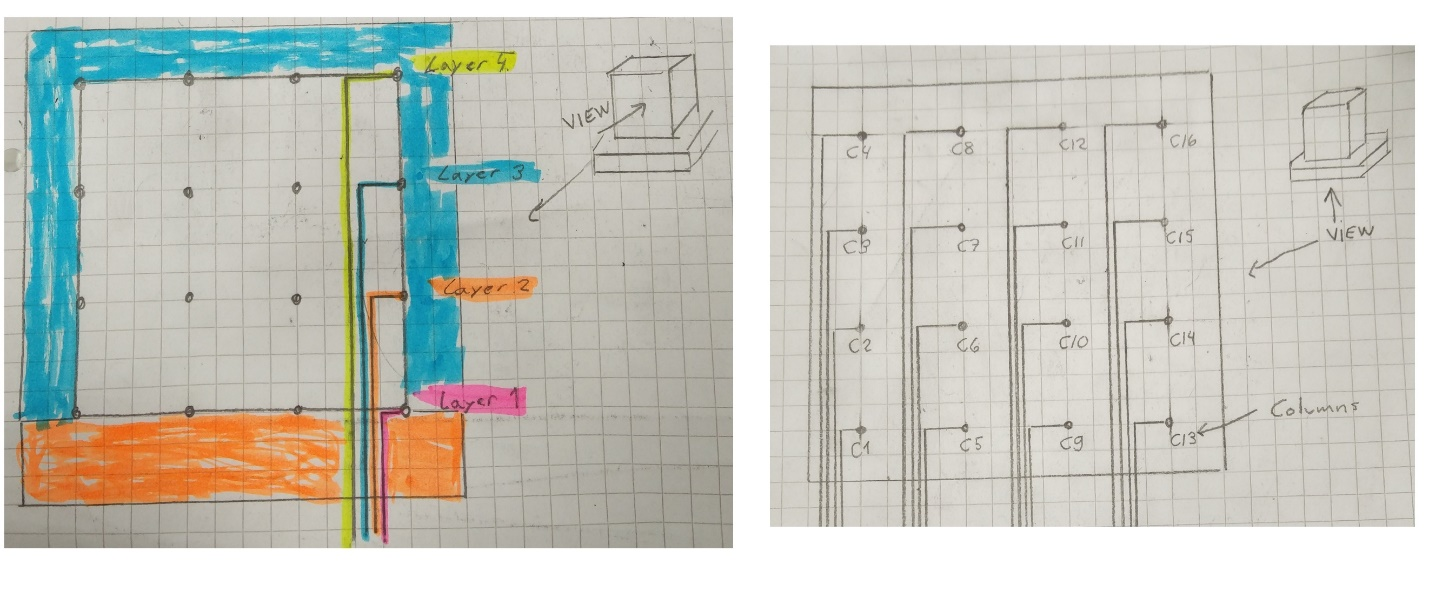 Layer 4.
VIEW
Layer 3
Layer 2
Layer 1
C4 C8 C12 C16
C3 C7 C11 C15
VIEW
C2 C6 C10 C14
Columns
C1 C5 C9 C13